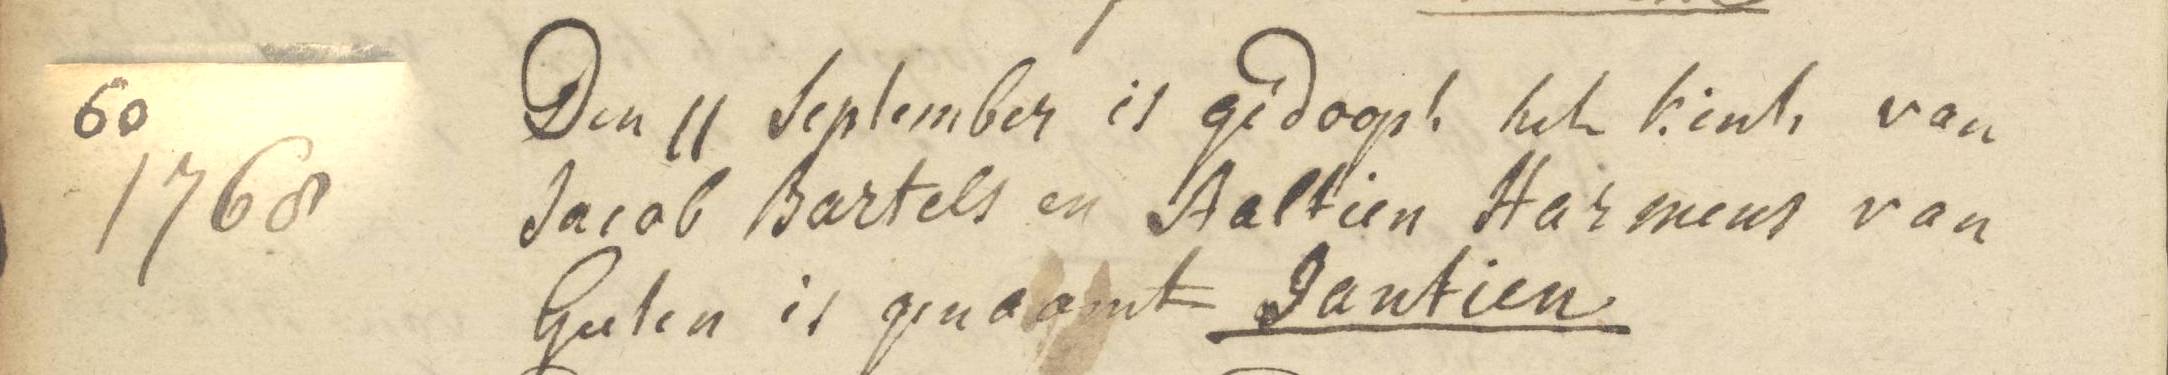 60
1768
Den 11 September is gedoopt het kint van
Jacob Bartels en Aaltien Harmens van
Geelen is genaamt Jantien